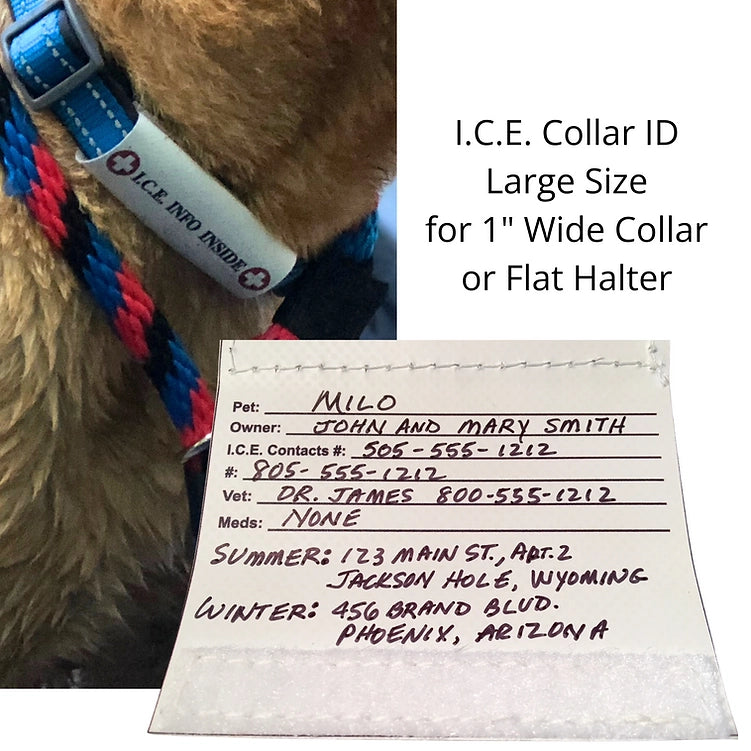 I.C.E. Collar ID
Large Size
for 1" Wide Collar
or Flat Halter
I.C.E. INFO INSIDE
Pet: MILO
Owner: JOHN AND MARY SMITH
I.C.E. Contacts #: 505-555-1212
#: 805-555-1212
Vet: DR. JAMES 800-555-1212
Meds: NONE
SUMMER: 123 MAIN ST., APT. 2
JACKSON HOLE, WYOMING
WINTER: 456 BRAND BLVD.
PHOENIX, ARIZONA